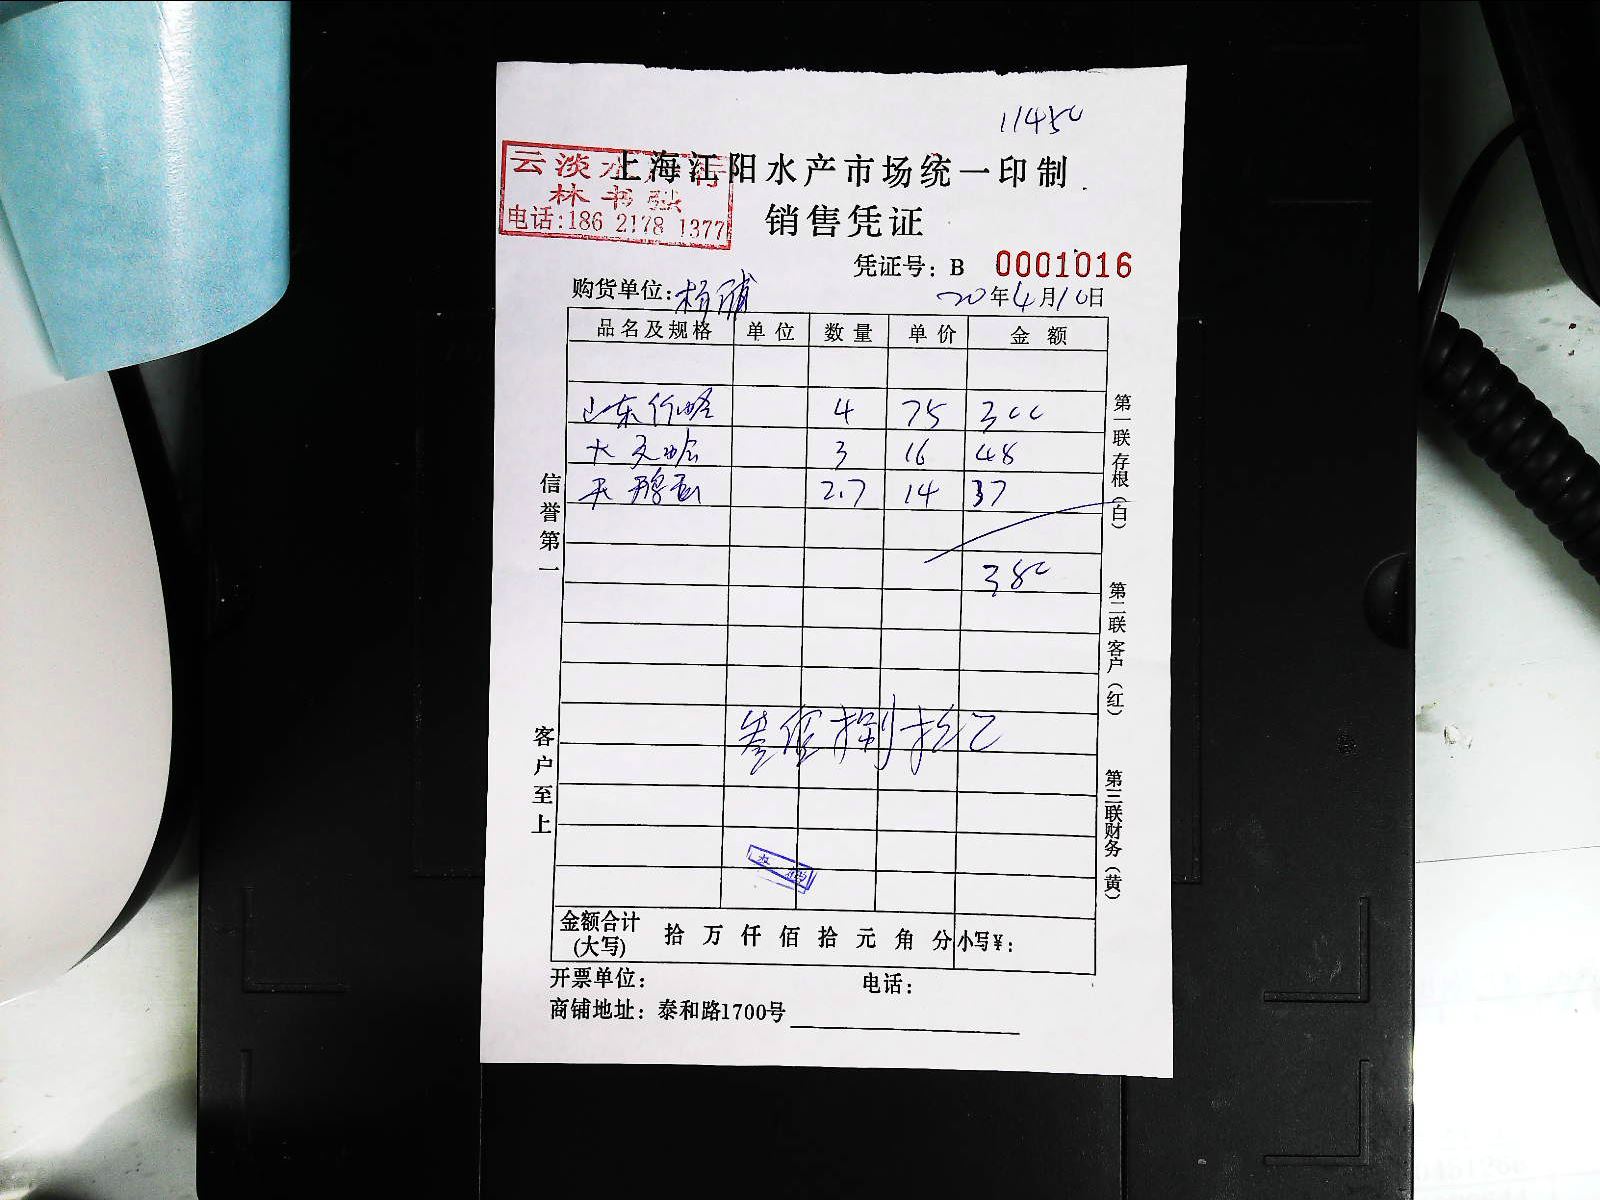 11450
云淡水产行
林书
电话:186 2178 1377
上海江阳水产市场统一印制
销售凭证
凭证号：B 0001016
购货单位：杨浦
20年4月10日
品名及规格 单位 数量 单价 金额
山东竹蛏 4 75 300
大文蛤 3 16 48
天鹅蛋 2.7 14 37
380
叁佰捌拾元
信誉第一
客户至上
第一联存根（白）
第二联客户（红）
第三联财务（黄）
金额合计(大写) 拾 万 仟 佰 拾 元 角 分 小写¥：
开票单位： 电话：
商铺地址：泰和路1700号